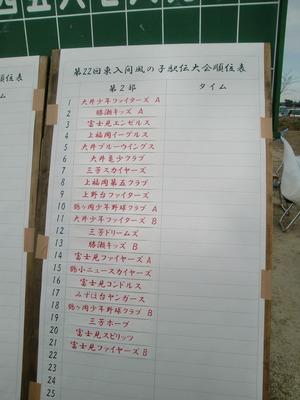 第22回東入間風の子駅伝大会順位表
第2部 タイム
1 大井少年ファイターズ A
2 勝瀬キッズ A
3 富士見エンゼルス
4 上福岡イーグルス
5 大井ブルーウイングス
6 大井亀少クラブ
7 三芳スカイヤーズ
8 上福岡第五クラブ
9 上野台ファイターズ
10 鶴ヶ岡少年野球クラブ A
11 大井少年ファイターズ B
12 三芳ドリームズ
13 勝瀬キッズ B
14 富士見ファイヤーズ A
15 鶴小ニュースカイヤーズ
16 富士見コンドルス
17 みずほ台ヤンガース
18 鶴ヶ岡少年野球クラブ B
19 三芳ホープ
20 富士見スピリッツ
21 富士見ファイヤーズ B
22
23
24
25